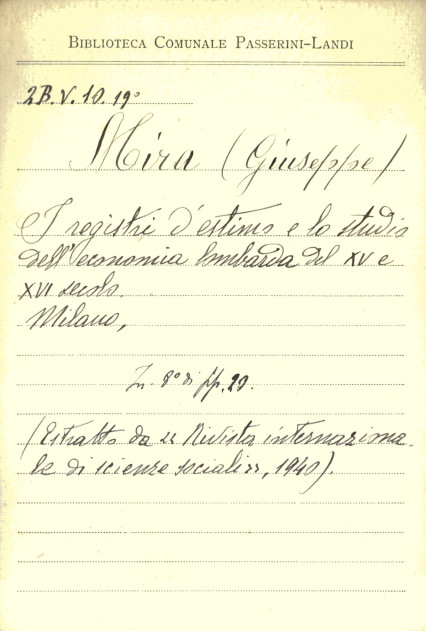 BIBLIOTECA COMUNALE PASSERINI-LANDI
2B.V.10.19°
Mira (Giuseppe)
I registri d'estimo e lo studio
dell'economia lombarda del XV e
XVI secolo.
Milano,
In-8° di pp. 29.
(Estratto da "Rivista internaziona-
le di scienze sociali", 1940).